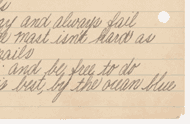 ay and always fail
e mast isn't hard as
nails
: and be free to do
s best, by the ocean blue